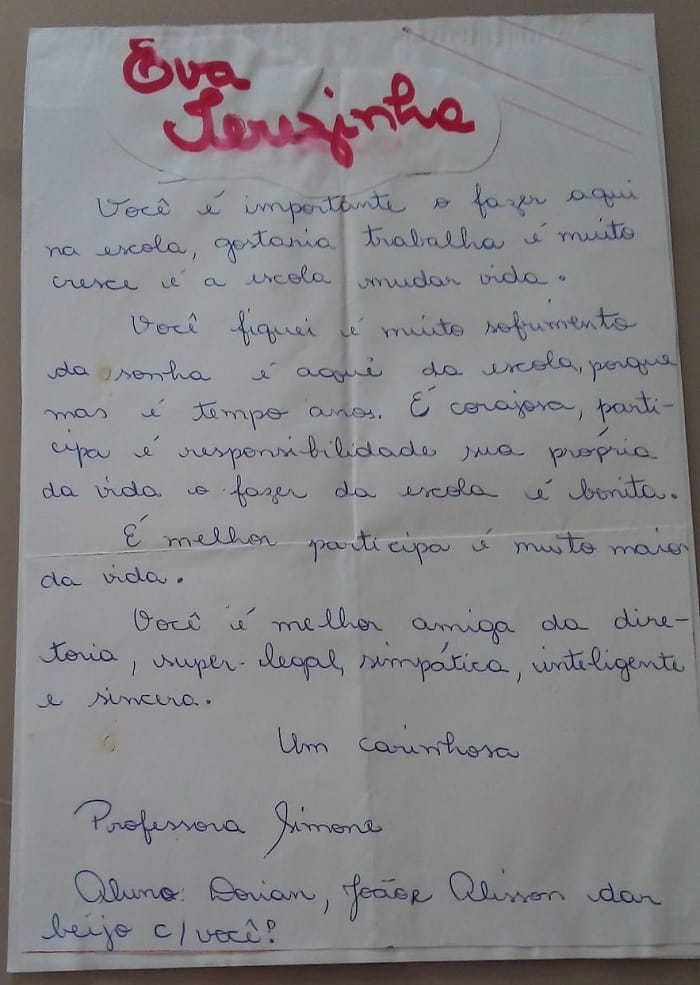 Eva
Terezinha
Você é importante o fazer aqui
na escola, gostaria trabalha é muito
cresce é a escola mudar vida.
Você fiquei é muito sofrimento
da sonha é aqui da escola, porque
mas é tempo anos. É corajosa, parti-
cipa é responsibilidade sua própria
da vida o fazer da escola é bonita.
É melhor participa é muito maior
da vida.
Você é melhor amiga da dire-
toria, super-legal, simpática, inteligente
e sincera.
Um carinhosa
Professora Simone
Aluno: Dorian, Alisson dar
beijo c/ você?